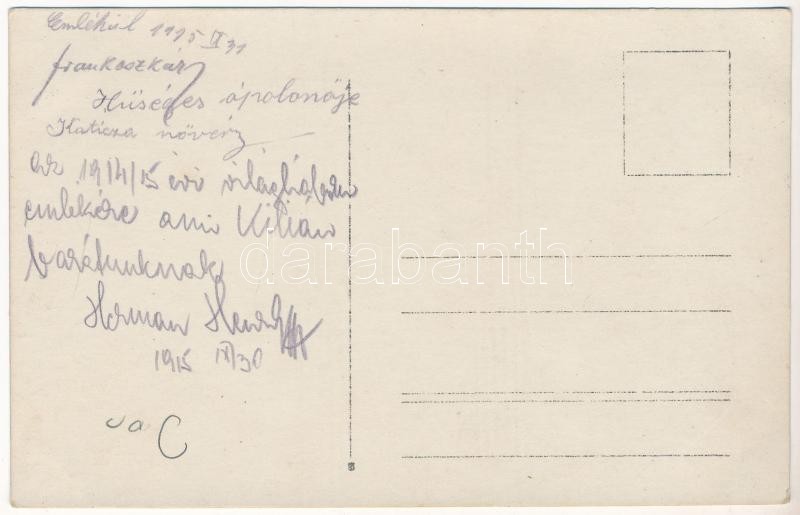 Emlékül 1915 IX 31
frankoszkár
Hűséges ápolonője
Katicza nővér
az 1914/15 évi világháború
emlékére ami Kilián
barátunknak
Herman
1915 IX/30
darabanth